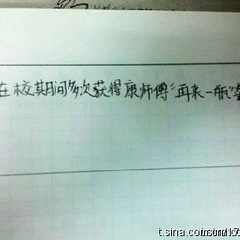 在校期间多次获得康师傅“再来一瓶”奖
t.sina.com.cn/